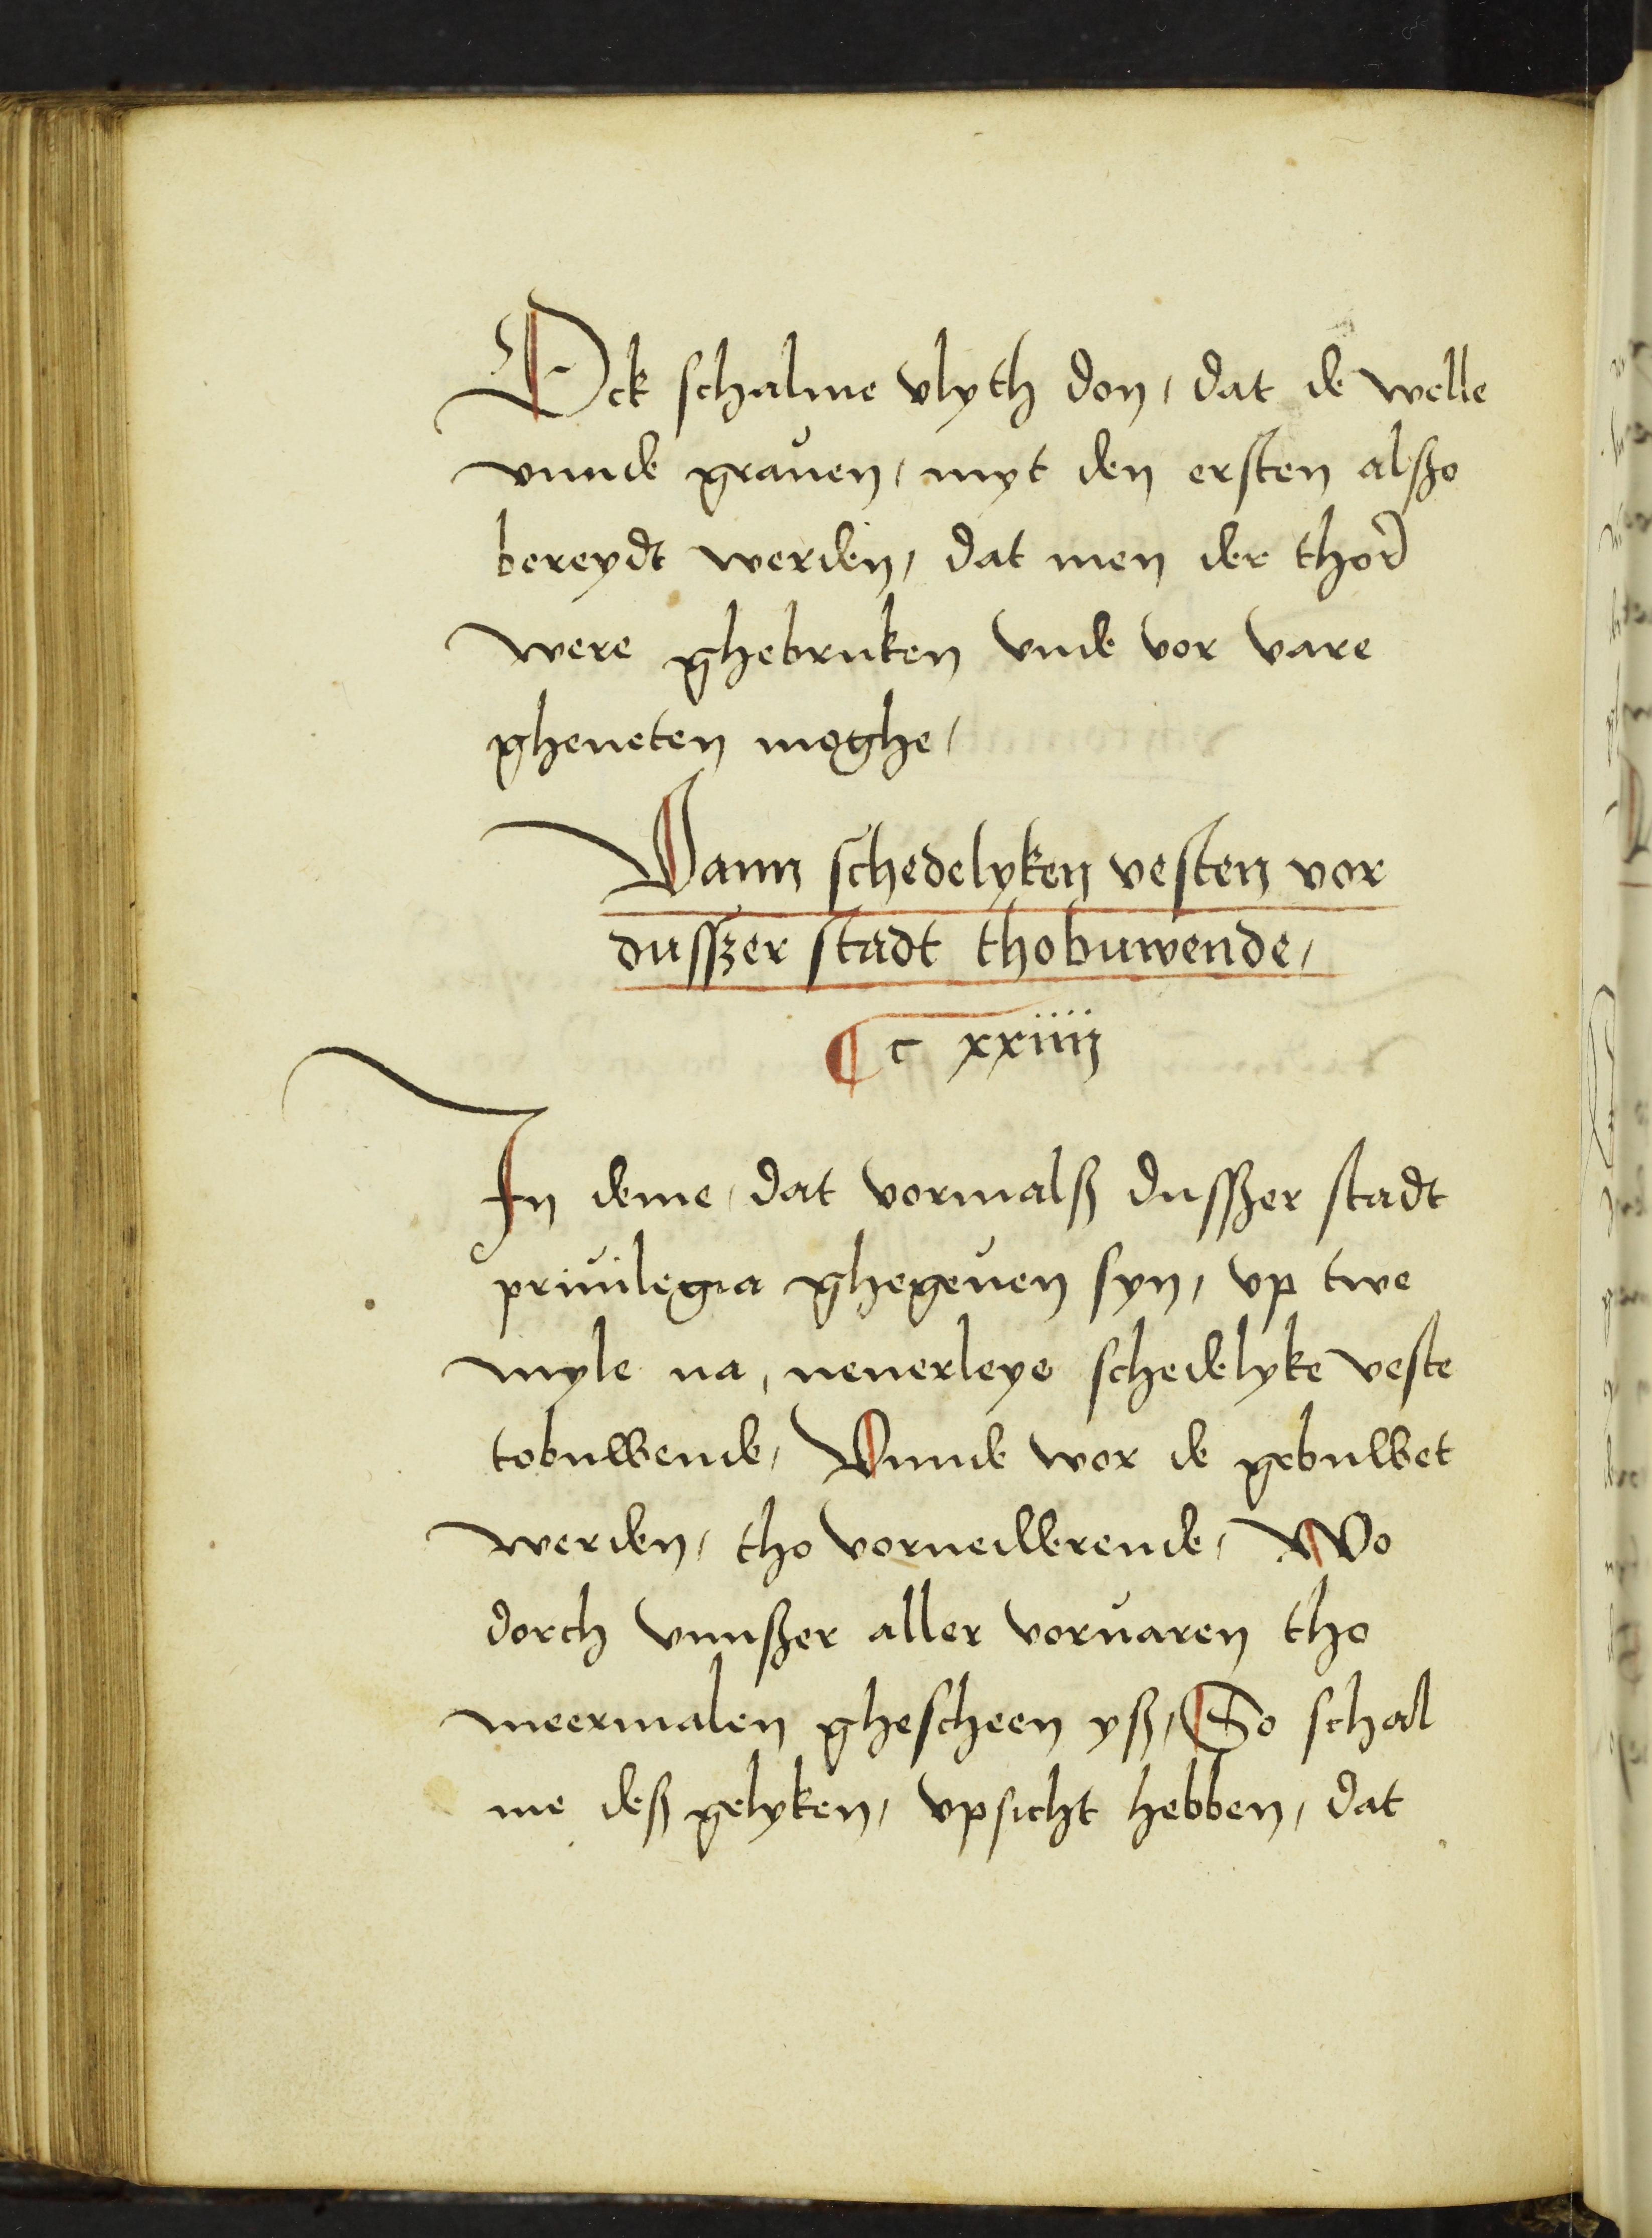 Ock schalme vlyth don, dat de welle
vnnde grauen, myt den ersten alßo
bereydt werden, dat men der thor
were ghebruken vnde vor vare
gheneten moghe,
Vann schedelyken vesten vor
dusszer stadt thobuwende,
¶ c xxiiii
In deme, dat vormalß dusszer stadt
priuilegia ghegeuen syn, vp twe
myle na, nenerleye schedelyke veste
tobuwende, Vnnde wor de gebuwet
werden, tho vornedderende, Wo
dorch vnnßer aller voruaren tho
meermalen ghescheen yß, So schal
me deß gelyken, vpsicht hebben, dat